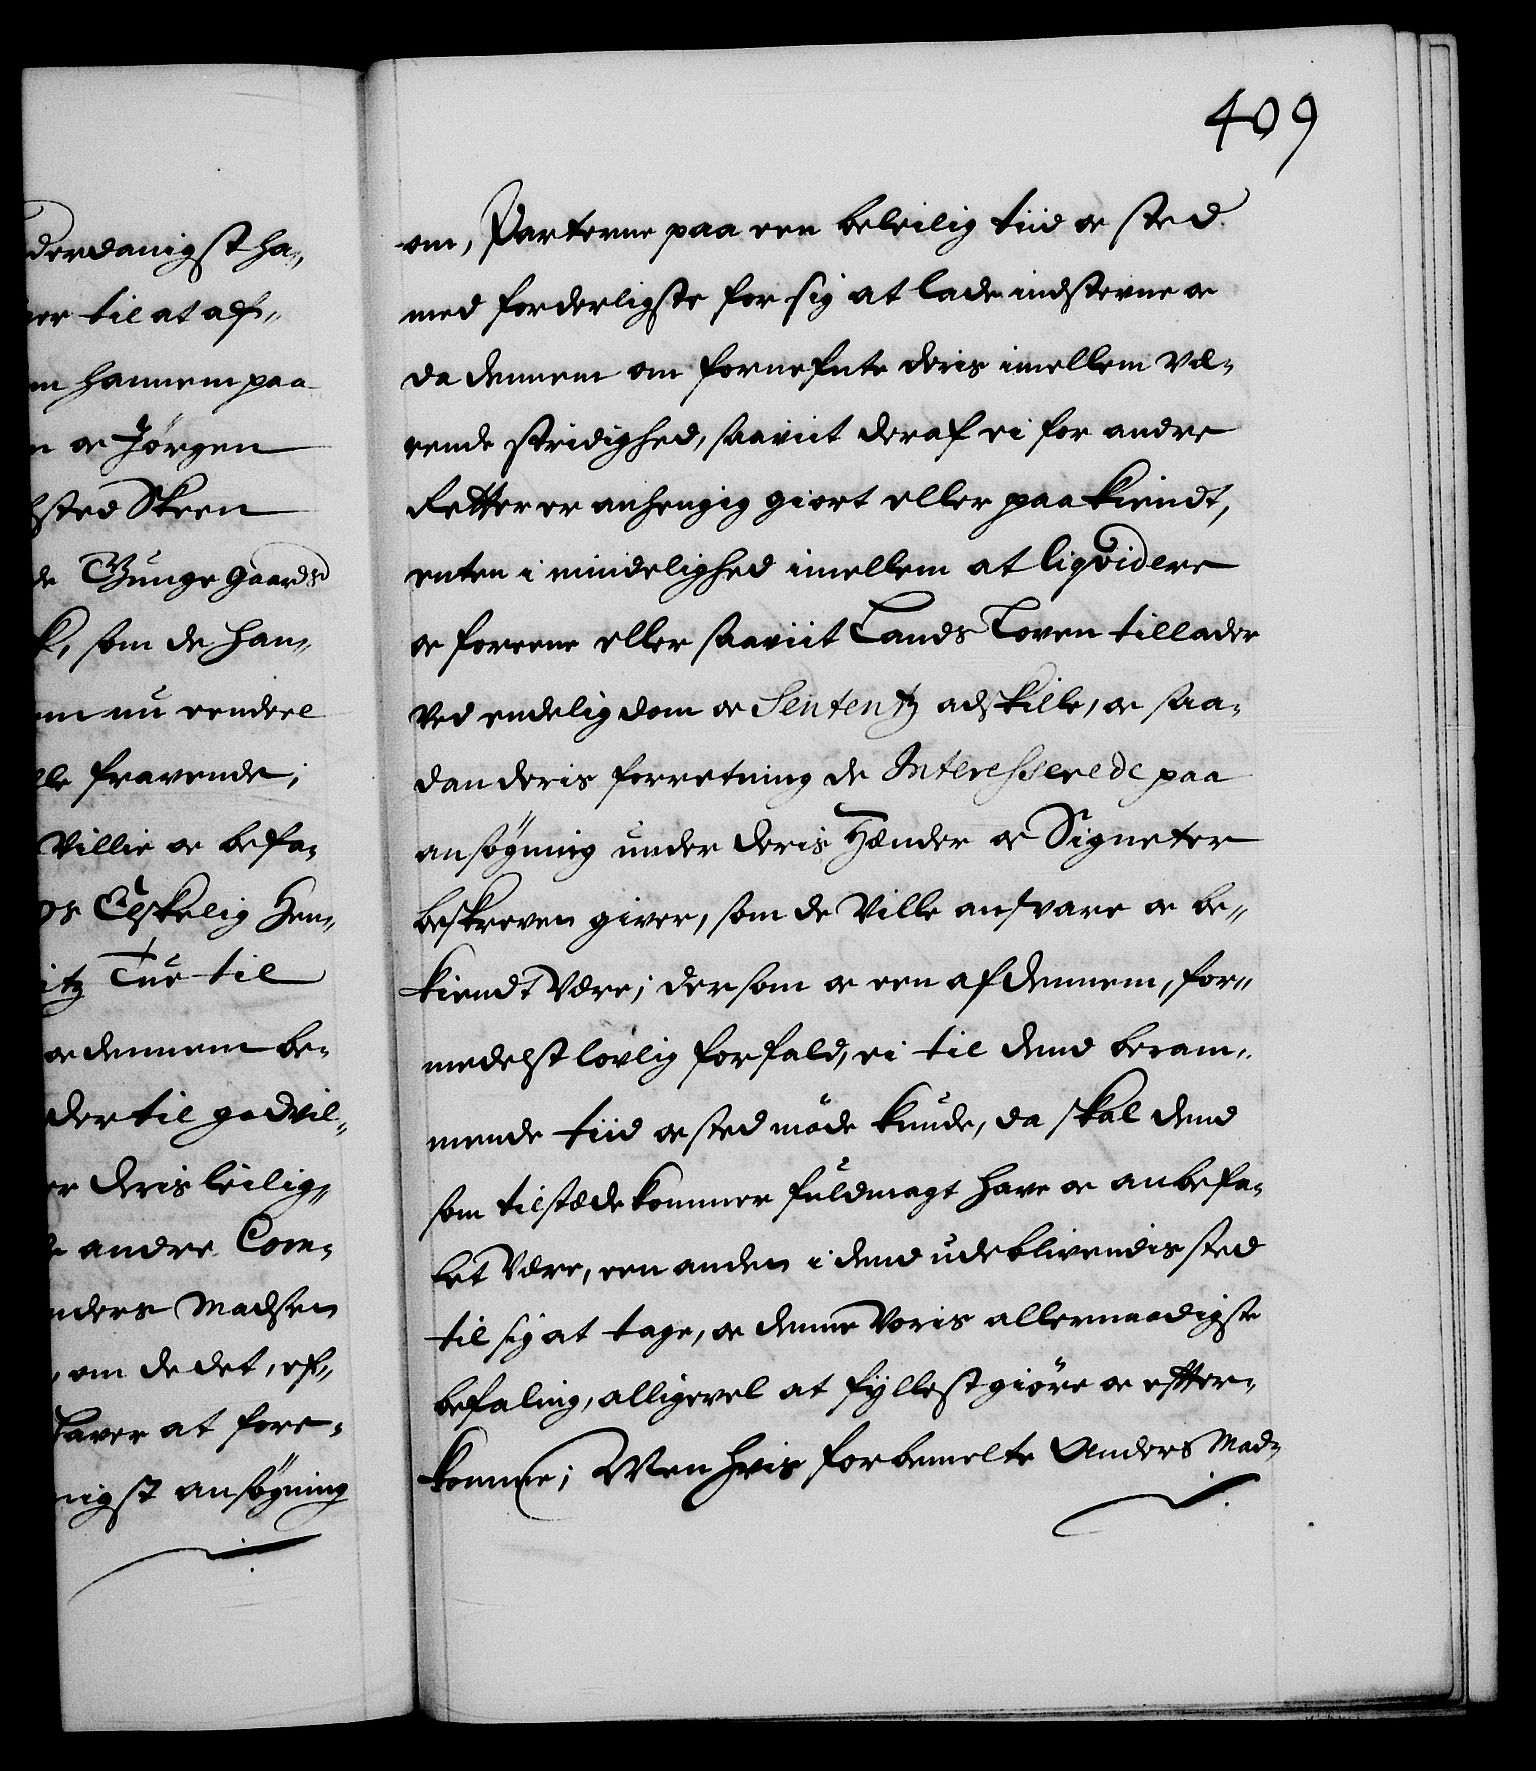 derdanigst ha,,
er til at af,,
m hannem paa
n oc Jørgen
sted Skeen
de Bunge Gaards
k, som de han,,
m nu eendeel
le fravende;
Villie oc befa,,
os Elskelig Hen,,
itz Tue til
oc dennem be,,
der til godvil,,
er deris leilig,,
andre Com,,
nders Madsen
, om de det, ef,,
haver at fore,,
nigst ansøgning
409
om, Parterne paa een beleilig tiid oc sted
med forderligste for sig at lade indstevne oc
da dennem om fornefnte deris imellem væ,,
rende stridighed, saaviit deraf ei for andre
Retter er anhengig giort eller paakiendt,
enten i mindelighed imellem at liqvidere
oc foreene eller saaviit Lands Loven tillader
Ved endelig dom oc Sententz adskille, oc saa,,
dan deris forretning de Interesserede paa
ansøgning under deris Hænder oc Signeter
beskreven giver, som de Ville ansvare oc be,,
kiendt Være; dersom oc een af dennem, for,,
medelst lovlig forfald, ei til dend beram,,
mende tiid oc sted møde kunde, da skal dend
som tilstæde kommer fuldmagt have oc anbefa,,
let Være, een anden i dend udeblivendis sted
til sig at tage, oc denne Voris allernaadigste
befaling, alligevel at fyllestgiøre oc efter,,
komme; Men hvis forbemelte Anders Mad,,